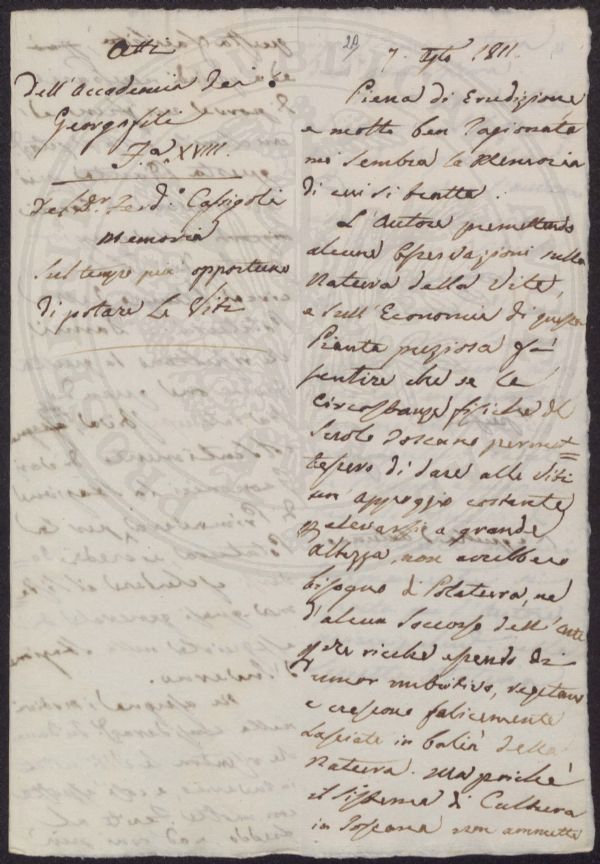 Atti
dell'Accademia dei
Georgofili
T.º XVIII.
Del Sr. Ferd.º Cassigoli
Memoria
Sul tempo più opportuno
di potare le Viti
29
7. Agto 1811.
Piena di Erudizione
e molto ben ragionata
mi sembra la Memoria
di cui si tratta.
L'Autore premettendo
alcune Osservazioni sulla
Natura della Vite,
e sull'Economia di questa
Pianta preziosa fà
sentire che se le
Circostanze fisiche del
Suolo Toscano permet=
tessero di dare alle Viti
un appoggio costante
p elevarsi a grande
altezza, non avrebbero
bisogno di Potatura, né
d'alcun Soccorso dell'Arte
ricche essendo di
umor nutritivo, vegetano
e crescono felicemente
Lasciate in balia della
Natura. Ma poiché
il Sistema di Cultura
in Toscana non ammette